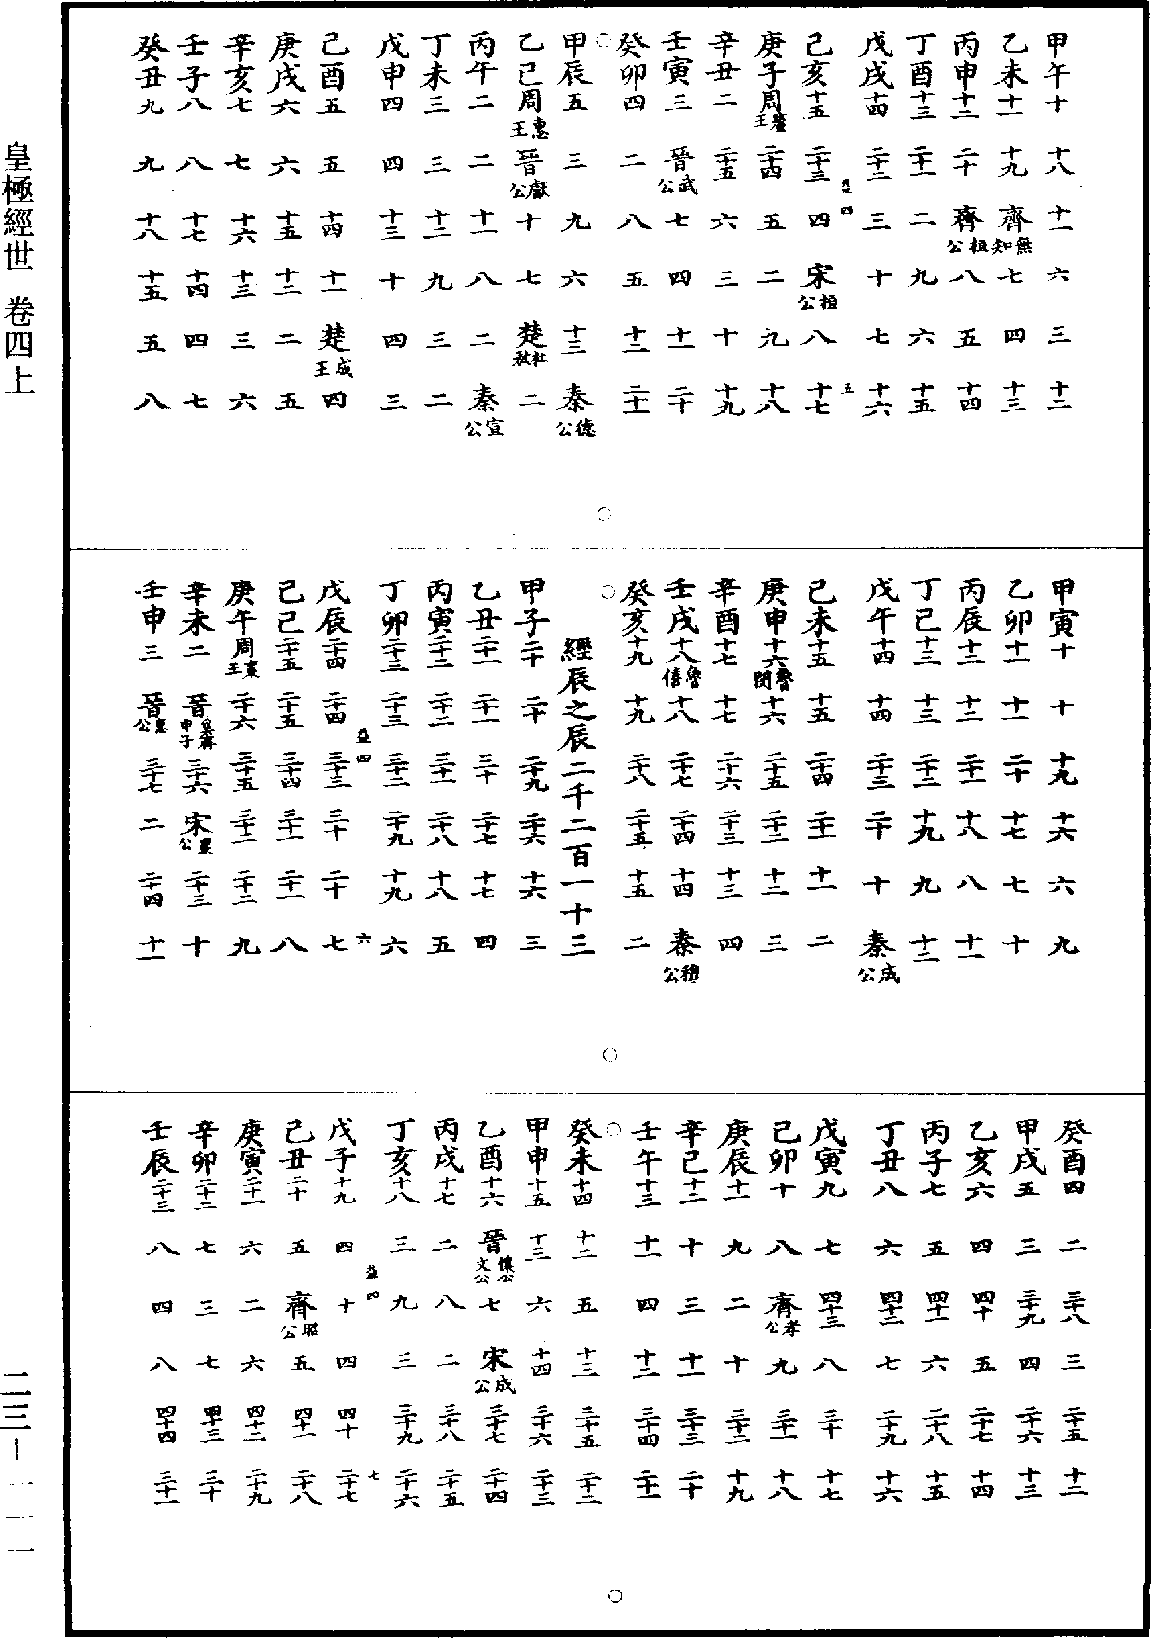 皇極經世 卷四上
甲午十 十八 十一 六 三 十二
乙未十一 十九 齊無知 七 四 十三
丙申十二 二十 齊桓公 八 五 十四
丁酉十三 二十一 二 九 六 十五
戊戌十四 二十二 三 十 七 十六
益四 五
己亥十五 二十三 四 宋桓公 八 十七
庚子周釐王 二十四 五 二 九 十八
辛丑二 二十五 六 三 十 十九
壬寅三 晉武公 七 四 十一 二十
癸卯四 二 八 五 十二 二十一
○ ○
甲辰五 三 九 六 十三 秦德公
乙巳周惠王 晉獻公 十 七 楚杜敖 二
丙午二 二 十一 八 二 秦宣公
丁未三 三 十二 九 三 二
戊申四 四 十三 十 四 三
己酉五 五 十四 十一 楚成王 四
庚戌六 六 十五 十二 二 五
辛亥七 七 十六 十三 三 六
壬子八 八 十七 十四 四 七
癸丑九 九 十八 十五 五 八
甲寅十 十 十九 十六 六 九
乙卯十一 十一 二十 十七 七 十
丙辰十二 十二 二十一 十八 八 十一
丁巳十三 十三 二十二 十九 九 十二
戊午十四 十四 二十三 二十 十 秦成公
己未十五 十五 二十四 二十一 十一 二
庚申十六魯閔 十六 二十五 二十二 十二 三
辛酉十七 十七 二十六 二十三 十三 四
壬戌十八魯僖 十八 二十七 二十四 十四 秦穆公
癸亥十九 十九 二十八 二十五 十五 二
○ ○
經辰之辰二千二百一十三
甲子二十 二十 二十九 二十六 十六 三
乙丑二十一 二十一 三十 二十七 十七 四
丙寅二十二 二十二 三十一 二十八 十八 五
丁卯二十三 二十三 三十二 二十九 十九 六
益四 六
戊辰二十四 二十四 三十三 三十 二十 七
己巳二十五 二十五 三十四 三十一 二十一 八
庚午周襄王 二十六 三十五 三十二 二十二 九
辛未二 晉奚齊卓子 三十六 宋襄公 二十三 十
壬申三 晉惠公 三十七 二 二十四 十一
癸酉四 二 三十八 三 二十五 十二
甲戌五 三 三十九 四 二十六 十三
乙亥六 四 四十 五 二十七 十四
丙子七 五 四十一 六 二十八 十五
丁丑八 六 四十二 七 二十九 十六
戊寅九 七 四十三 八 三十 十七
己卯十 八 齊孝公 九 三十一 十八
庚辰十一 九 二 十 三十二 十九
辛巳十二 十 三 十一 三十三 二十
壬午十三 十一 四 十二 三十四 二十一
○ ○
癸未十四 十二 五 十三 三十五 二十二
甲申十五 十三 六 十四 三十六 二十三
乙酉十六 晉懷公文公 七 宋成公 三十七 二十四
丙戌十七 二 八 二 三十八 二十五
丁亥十八 三 九 三 三十九 二十六
益四 七
戊子十九 四 十 四 四十 二十七
己丑二十 五 齊昭公 五 四十一 二十八
庚寅二十一 六 二 六 四十二 二十九
辛卯二十二 七 三 七 四十三 三十
壬辰二十三 八 四 八 四十四 三十一
二三—一一一